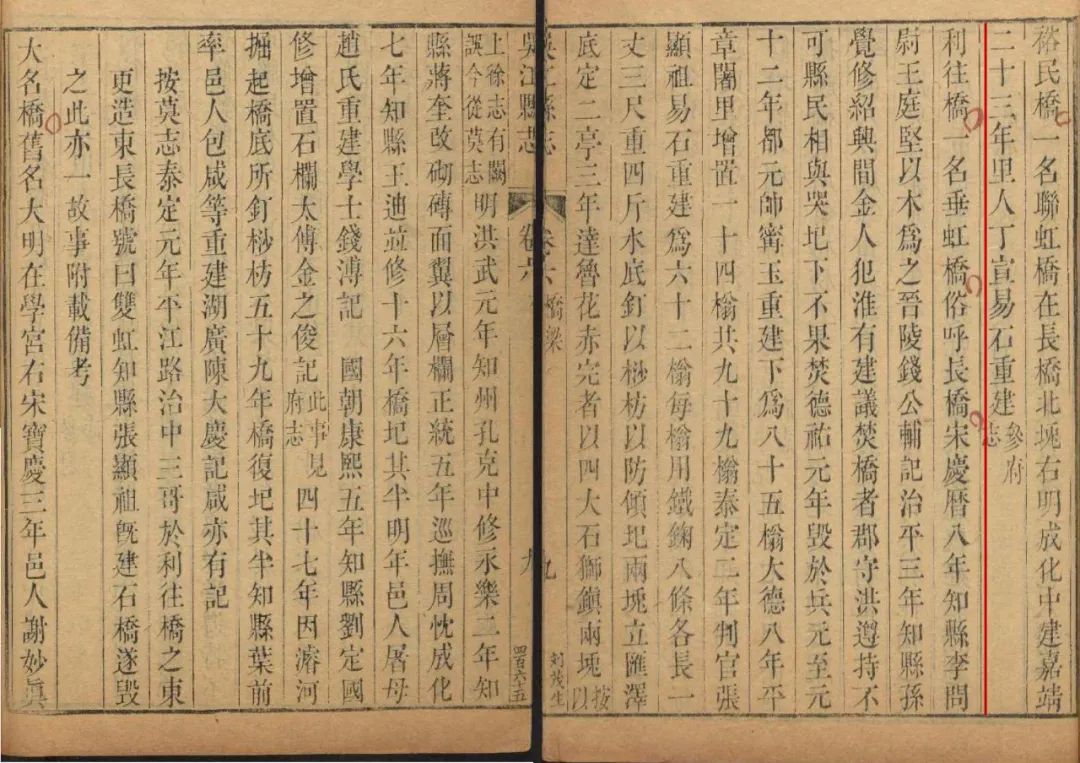 裕民橋一名聯虹橋在長橋北塊右明成化中建嘉靖
二十三年里人丁宣易石重建參府志
利往橋一名垂虹橋俗呼長橋宋慶曆八年知縣李問
尉王庭堅以木爲之晉陵錢公輔記治平三年知縣孫
覺修紹興間金人犯淮有建議焚橋者郡守洪遵持不
可縣民相與哭圯下不果焚德祐元年毀於兵元至元
十二年都元帥甯玉重建下爲八十五㮰大德八年平
章闍里增置一十四㮰共九十九㮰泰定二年判官張
顯祖易石重建爲六十二㮰每㮰用鐵錭八條各長一
丈三尺重四斤水底釘以桫枋以防傾圯兩塊立匯澤
底定二亭三年達魯花赤完者以四大石獅鎮兩塊按以
吳江縣志
卷六
橋梁
九
刘茂生
吳江縣志
卷六
九
四百六十五
上徐志有闕誤今從莫志明洪武元年知州孔克中修永樂二年知
縣蔣奎改砌磚面翼以層欄正統五年巡撫周忱成化
七年知縣王迪竝修十六年橋圯其半明年邑人屠母
趙氏重建學士錢溥記 國朝康熙五年知縣劉定國
修增置石欄太傅金之俊記此事見府志四十七年因濬河
掘起橋底所釘桫枋五十九年橋復圯其半知縣葉前
率邑人包咸等重建湖廣陳大慶記咸亦有記
按莫志泰定元年平江路治中三哥於利往橋之東
更造東長橋號曰雙虹知縣張顯祖旣建石橋遂毀
之此亦一故事附載備考
大名橋舊名大明在學宮右宋寶慶三年邑人謝妙眞